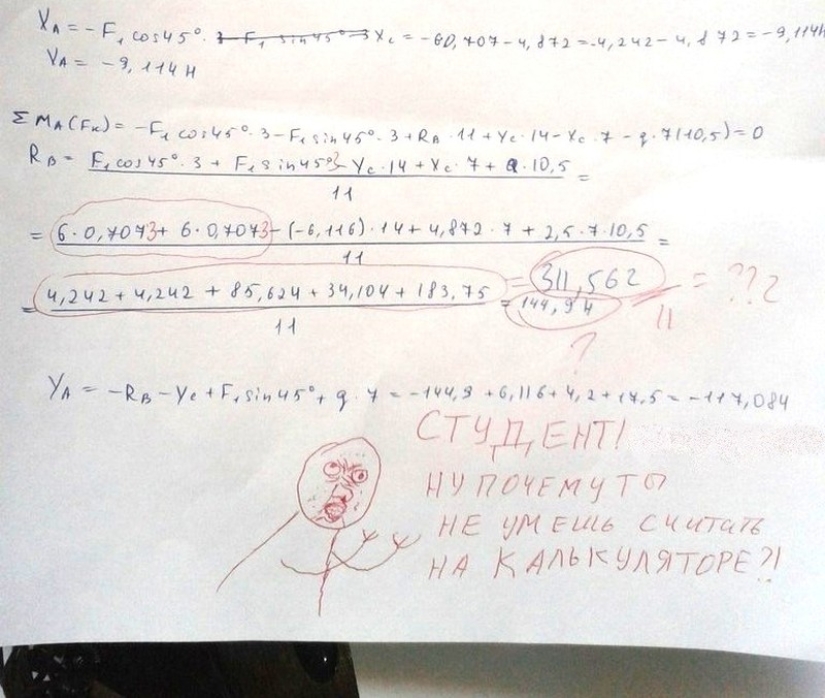 X_A = -F₁cos45° · 3 - F₁ sin45° · 3 X_C = -60,707 - 4,872 = -4,242 - 4,872 = -9,114Н
Y_A = -9,114Н
Σ M_A(F_K) = -F₁cos45° · 3 - F₁sin45° · 3 + R_B · 11 + Y_C · 14 - X_C · 7 - q · 7(10,5) = 0
R_B = F₁cos45° · 3 + F₁sin45°3 - Y_C · 14 + X_C · 7 + q · 10,5 =
11
= 6 · 0,7073 + 6 · 0,7073 - (-6,116) · 14 + 4,872 · 7 + 2,5 · 7 · 10,5 =
11
= 4,242 + 4,242 + 85,624 + 34,104 + 183,75 = 311,562 = ???
= 144,94 11
11 ?
Y_A = -R_B - Y_C + F₁sin45° + q · 7 = -144,9 + 6,116 + 4,2 + 17,5 = -117,084
СТУДЕНТ!
НУ ПОЧЕМУ ТЫ
НЕ УМЕШЬ СЧИТАТЬ
НА КАЛЬКУЛЯТОРЕ?!